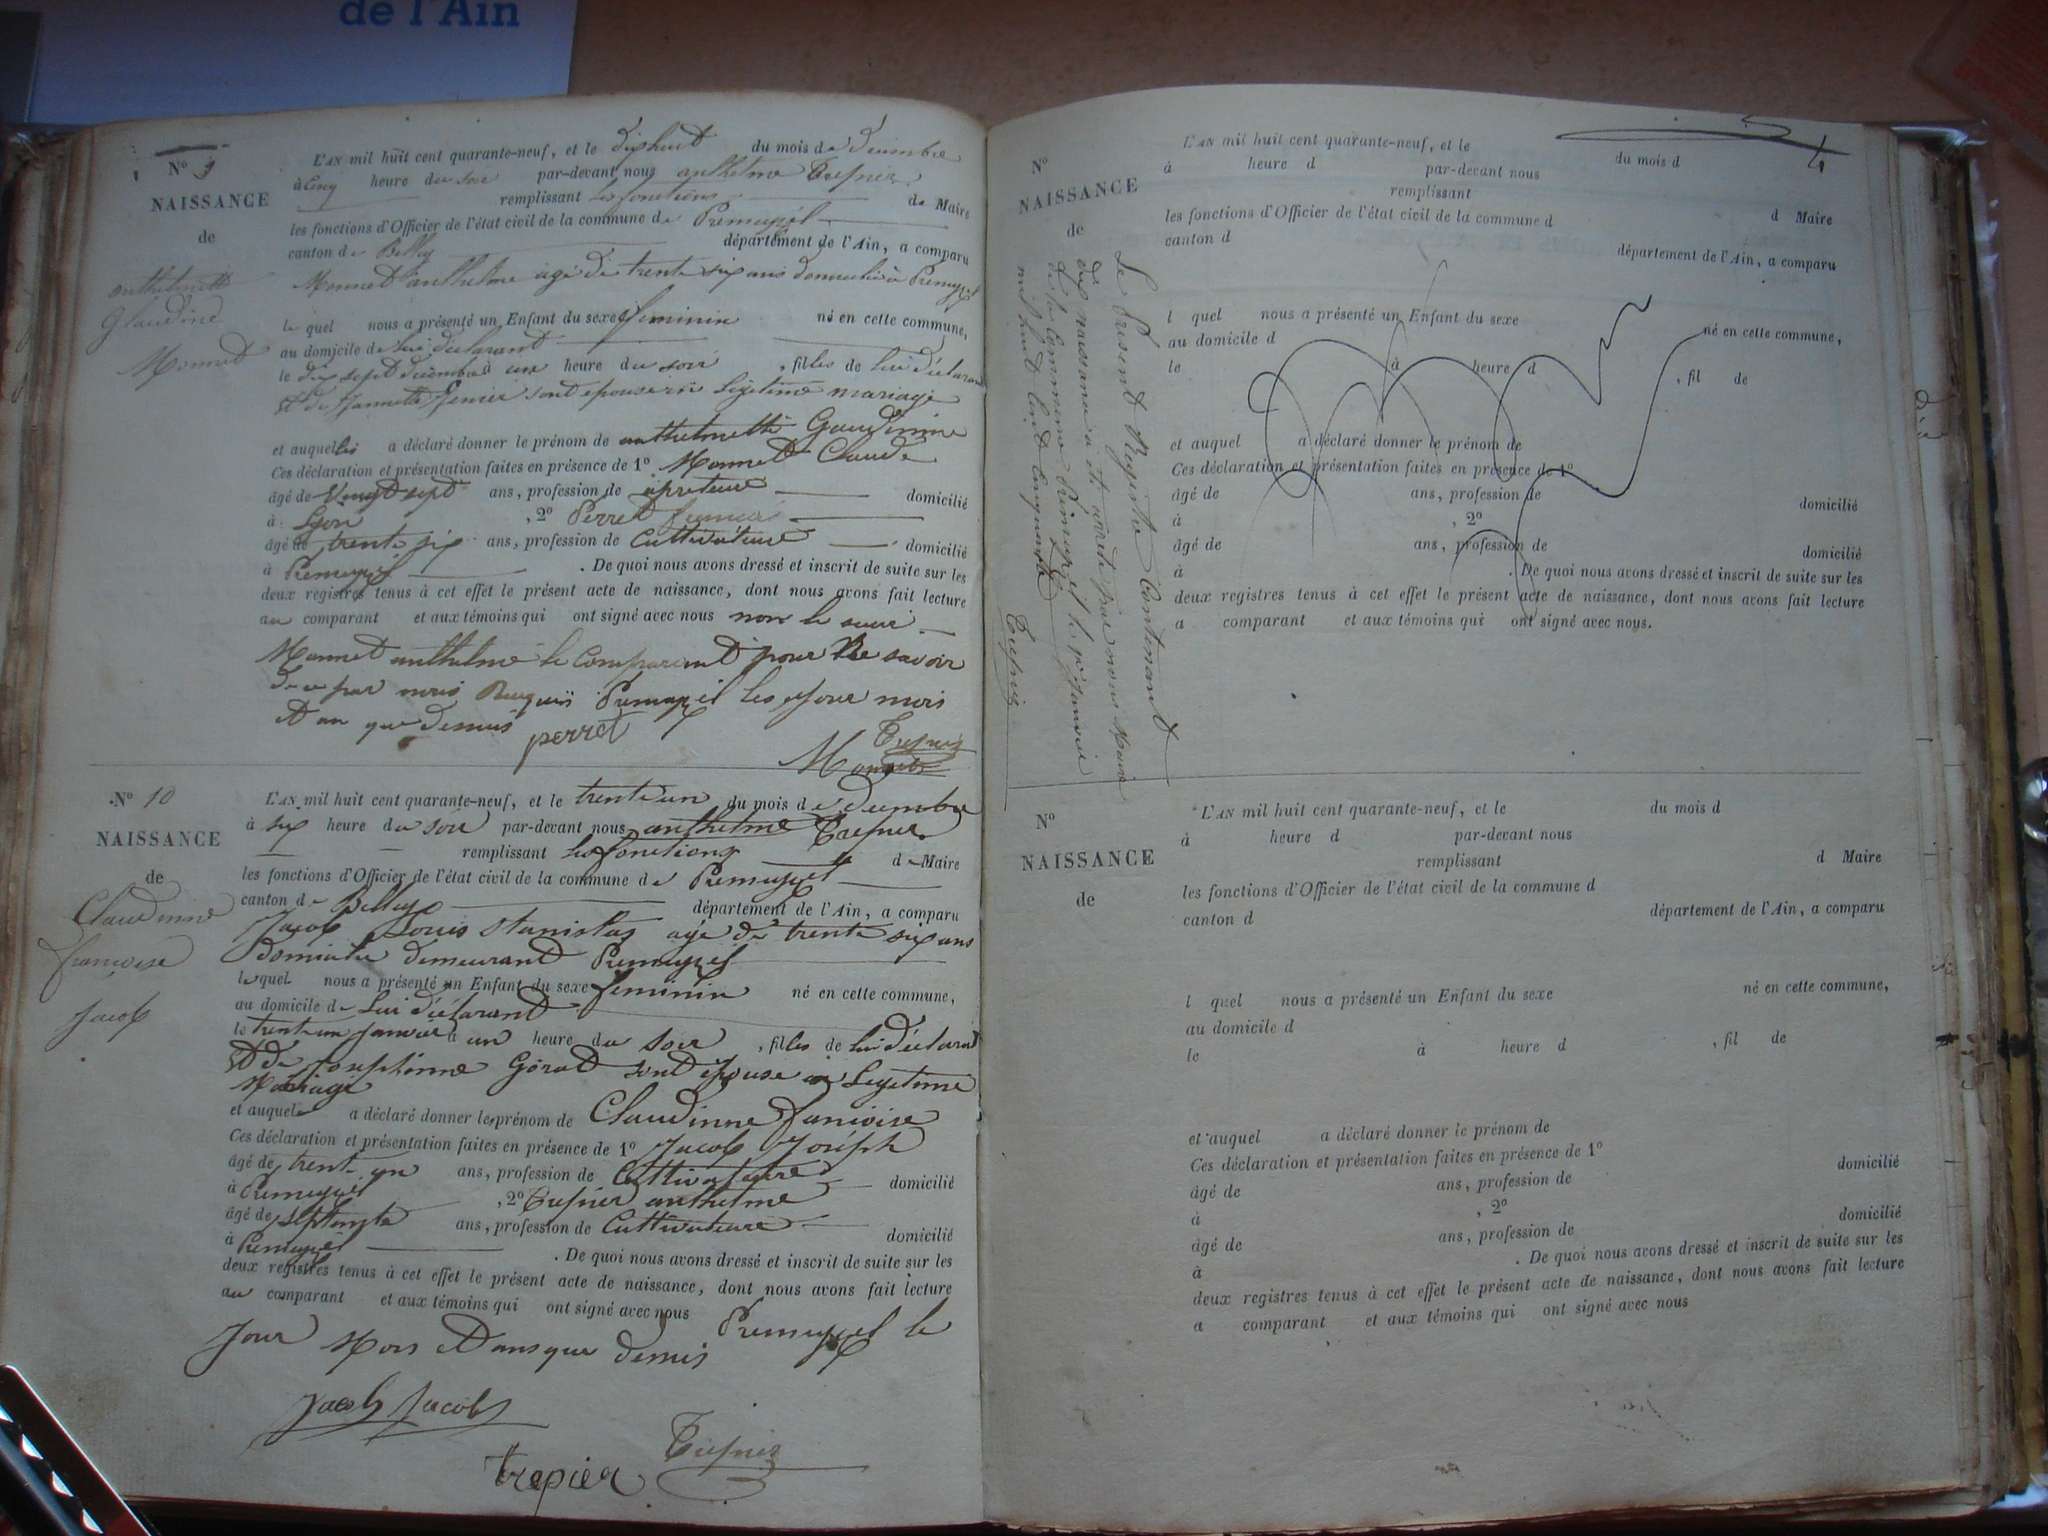 de l'Ain
N° 9
NAISSANCE
de
anthelmette
Glaudine
Monnet
L'AN mil huit cent quarante-neuf, et le dixhuit du mois de decembre
à cinq heure du soir par-devant nous anthelme Trepier
remplissant les fonctions de Maire
les fonctions d'Officier de l'état civil de la commune de Premeyzel
canton de Belley département de l'Ain, a comparu
Monnet anthelme agé de trente six ans domicilié à Premeyzel
le quel nous a présenté un Enfant du sexe feminin né en cette commune,
au domicile de lui déclarant
le dix sept decembre à une heure du soir , filles de lui déclarant
et de Jannette sont epouse en legetime mariage
et auquelles a déclaré donner le prénom de anthelmette Gaudinne
Ces déclaration et présentation faites en présence de 1° Monnet Claude
âgé de Vingt sept ans, profession de domicilié
à Lyon , 2° Perret
âgé de trente six ans, profession de Cultivateure domicilié
à Premeyzel . De quoi nous avons dressé et inscrit de suite sur les
deux registres tenus à cet effet le présent acte de naissance, dont nous avons fait lecture
au comparant et aux témoins qui ont signé avec nous non le
Monnet anthelme le comparant pour ne savoir
de ce par nous Requis Premeyzel les jour mois
et an que dessus
perret
Trepier
Monnet
N° 10
NAISSANCE
de
Claudinne
francoise
Jacob
L'AN mil huit cent quarante-neuf, et le trente un du mois de decembre
à six heure du soir par-devant nous anthelme Trepier
remplissant les fonctions de Maire
les fonctions d'Officier de l'état civil de la commune de Premeyzel
canton de Belley département de l'Ain, a comparu
Jacob Louis Stanislas agé de trente six ans
domicilie demeurant Premeyzel
le quel nous a présenté un Enfant du sexe feminin né en cette commune,
au domicile de Lui déclarant
le trente un Janvier à un heure du soir , filles de lui déclarant
et de Josephinne Gorat sont épouse en Legetime
Mariage
et auquel a déclaré donner les prénom de Claudinne francoise
Ces déclaration et présentation faites en présence de 1° Jacob Joséph
âgé de trent un ans, profession de Cultivateure domicilié
à Premeyzel , 2° Trepier anthelme
âgé de septente ans, profession de Cultivateure domicilié
à Premeyzel . De quoi nous avons dressé et inscrit de suite sur les
deux registres tenus à cet effet le présent acte de naissance, dont nous avons fait lecture
au comparant et aux témoins qui ont signé avec nous Premeyzel le
Jour Mois et ans que demis
Jacob Jacob
trepier Trepier
4
N°
NAISSANCE
de
Le Present Registre Contenant
des naissance à été arrete par nous Maire
de la Commune Premeyzel le 1er Janvier
mil huit cent cinquante
Trepier
L'AN mil huit cent quarante-neuf, et le du mois d
à heure d par-devant nous
remplissant d Maire
les fonctions d'Officier de l'état civil de la commune d
canton d département de l'Ain, a comparu
l quel nous a présenté un Enfant du sexe né en cette commune,
au domicile d
le à heure d , fil de
et auquel a déclaré donner le prénom de
Ces déclaration et présentation faites en présence de 1°
âgé de ans, profession de domicilié
à , 2°
âgé de ans, profession de domicilié
à . De quoi nous avons dressé et inscrit de suite sur les
deux registres tenus à cet effet le présent acte de naissance, dont nous avons fait lecture
a comparant et aux témoins qui ont signé avec nous.
N°
NAISSANCE
de
L'AN mil huit cent quarante-neuf, et le du mois d
à heure d par-devant nous
remplissant d Maire
les fonctions d'Officier de l'état civil de la commune d
canton d département de l'Ain, a comparu
l quel nous a présenté un Enfant du sexe né en cette commune,
au domicile d
le à heure d , fil de
et auquel a déclaré donner le prénom de
Ces déclaration et présentation faites en présence de 1°
âgé de ans, profession de domicilié
à , 2°
âgé de ans, profession de domicilié
à . De quoi nous avons dressé et inscrit de suite sur les
deux registres tenus à cet effet le présent acte de naissance, dont nous avons fait lecture
a comparant et aux témoins qui ont signé avec nous